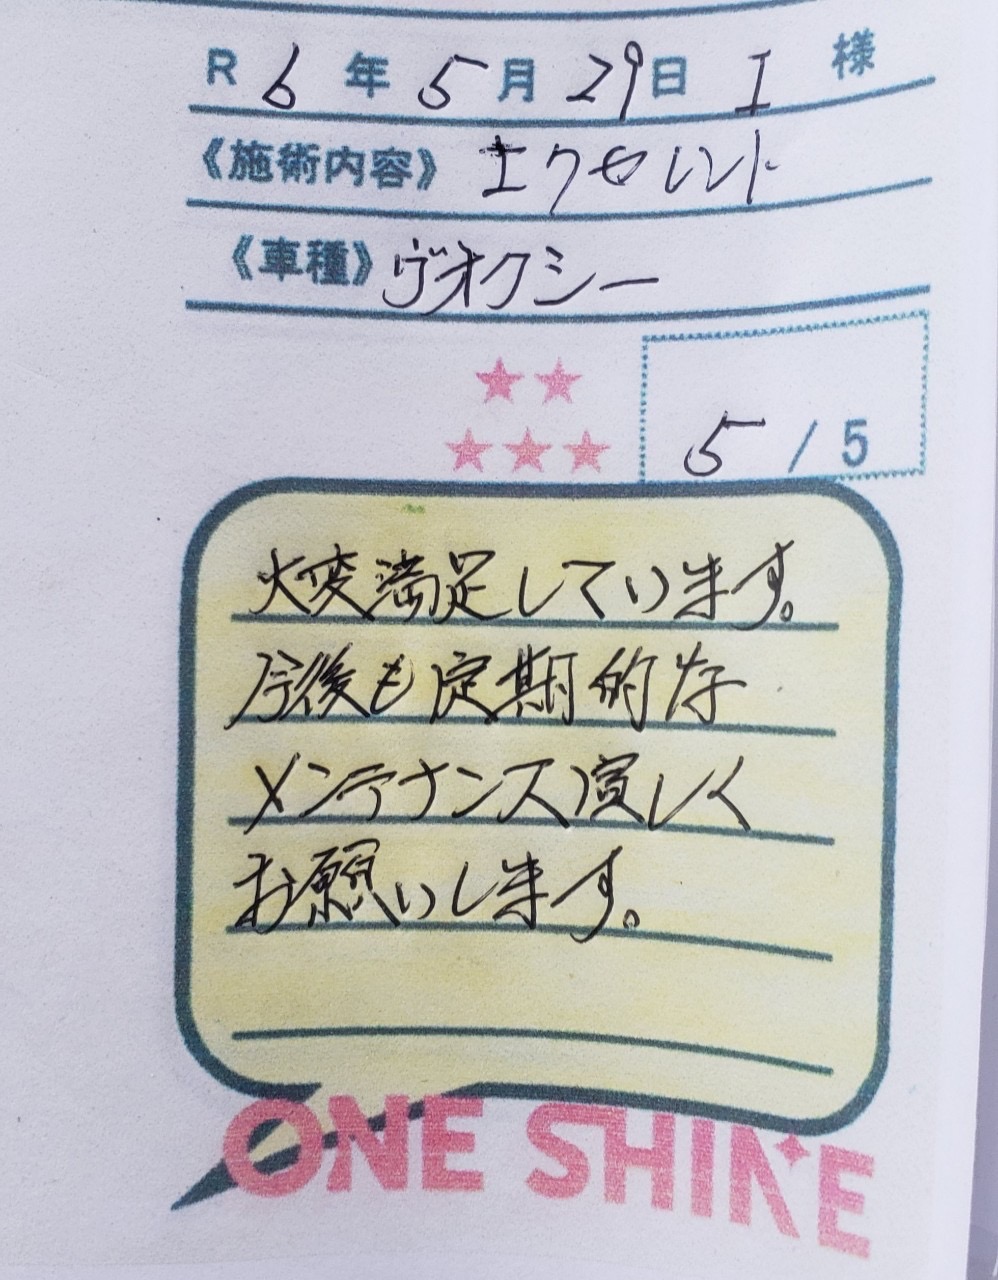 R 6 年 5 月 29 日 I 様
《施術内容》 エクセレント
《車種》 ヴォクシー
5 / 5
大変満足しています。
今後も定期的な
メンテナンス宜しく
お願いします。
ONE SHINE